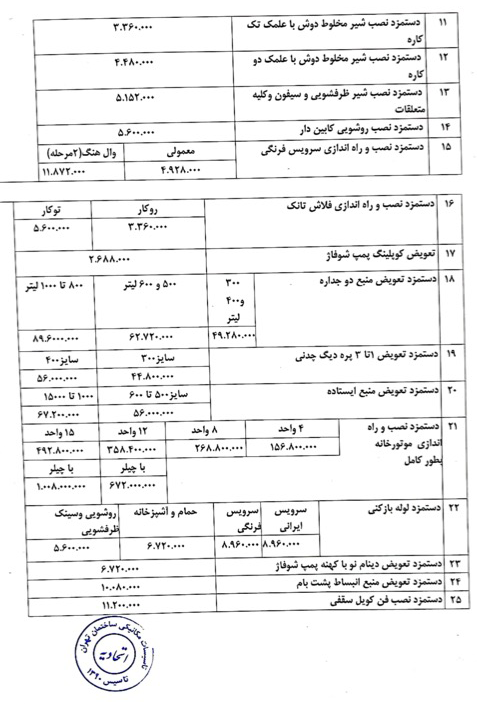 ۱۱ دستمزد نصب شیر مخلوط دوش با علمک تک ۳.۳۶۰.۰۰۰
کاره
۱۲ دستمزد نصب شیر مخلوط دوش با علمک دو ۴.۴۸۰.۰۰۰
کاره
۱۳ دستمزد نصب شیر ظرفشویی و سیفون وکلیه ۵.۱۵۲.۰۰۰
متعلقات
۱۴ دستمزد نصب روشویی کابین دار ۵.۶۰۰.۰۰۰
۱۵ دستمزد نصب و راه اندازی سرویس فرنگی معمولی وال هنگ(۲مرحله)
۴.۹۲۸.۰۰۰ ۱۱.۸۷۲.۰۰۰
۱۶ دستمزد نصب و راه اندازی فلاش تانک روکار توکار
۳.۳۶۰.۰۰۰ ۵.۶۰۰.۰۰۰
۱۷ تعویض کوپلینگ پمپ شوفاژ ۲.۶۸۸.۰۰۰
۱۸ دستمزد تعویض منبع دو جداره ۳۰۰ ۵۰۰ و ۶۰۰ لیتر ۸۰۰ تا ۱۰۰۰ لیتر
و۴۰۰
لیتر
۴۹.۲۸۰.۰۰۰ ۶۲.۷۲۰.۰۰۰ ۸۹.۶۰۰۰.۰۰۰
۱۹ دستمزد تعویض ۱تا ۳ پره دیگ چدنی سایز۳۰۰ سایز۴۰۰
۴۴.۸۰۰.۰۰۰ ۵۶.۰۰۰.۰۰۰
۲۰ دستمزد تعویض منبع ایستاده سایز۵۰۰ تا ۶۰۰ ۱۰۰۰ تا ۱۵۰۰۰
۵۶.۰۰۰.۰۰۰ ۶۷.۲۰۰.۰۰۰
۲۱ دستمزد نصب و راه ۴ واحد ۸ واحد ۱۲ واحد ۱۵ واحد
اندازی موتورخانه ۱۵۶.۸۰۰.۰۰۰ ۲۶۸.۸۰۰.۰۰۰ ۳۵۸.۴۰۰.۰۰۰ ۴۹۲.۸۰۰.۰۰۰
بطور کامل با چیلر با چیلر
۶۷۲.۰۰۰.۰۰۰ ۱.۰۰۸.۰۰۰.۰۰۰
۲۲ دستمزد لوله بازکنی سرویس سرویس حمام و آشپزخانه روشویی وسینک
ایرانی فرنگی ظرفشویی
۸.۹۶۰.۰۰۰ ۸.۹۶۰.۰۰۰ ۶.۷۲۰.۰۰۰ ۵.۶۰۰.۰۰۰
۲۳ دستمزد تعویض دینام نو با کهنه پمپ شوفاژ ۶.۷۲۰.۰۰۰
۲۴ دستمزد تعویض منبع انبساط پشت بام ۱۰.۰۸۰.۰۰۰
۲۵ دستمزد نصب فن کویل سقفی ۱۱.۲۰۰.۰۰۰
تاسیسات مکانیکی ساختمان تهران
اتحادیه
تاسیس ۱۳۹۰